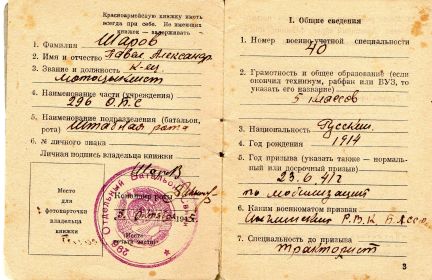 Красноармейскую книжку иметь
всегда при себе. Не имеющих
книжек — задерживать
1. Фамилия Шаров
2. Имя и отчество Павел Александр
3. Звание и должность к-ец
мотоциклист
4. Наименование части (учреждения)
296 О.Б.С
5. Наименование подразделения (батальон,
рота) Штабная рота
6. № личного знака
Личная подпись владельца книжки
Шаров
Место
для
фотокарточки
владельца
книжки
Командир роты
Место
печати части
I. Общие сведения
1. Номер военно-учетной специальности
40
2. Грамотность и общее образование (если
окончил техникум, рабфак или ВУЗ, то
указать его название)
5 классов
3. Национальность Русский
4. Год рождения 1914
5. Год призыва (указать также — нормаль-
ный или досрочный призыв)
23.6.41 г
по мобилизации
6. Каким военкоматом призван
Р.В.К
7. Специальность до призыва
тракторист
3